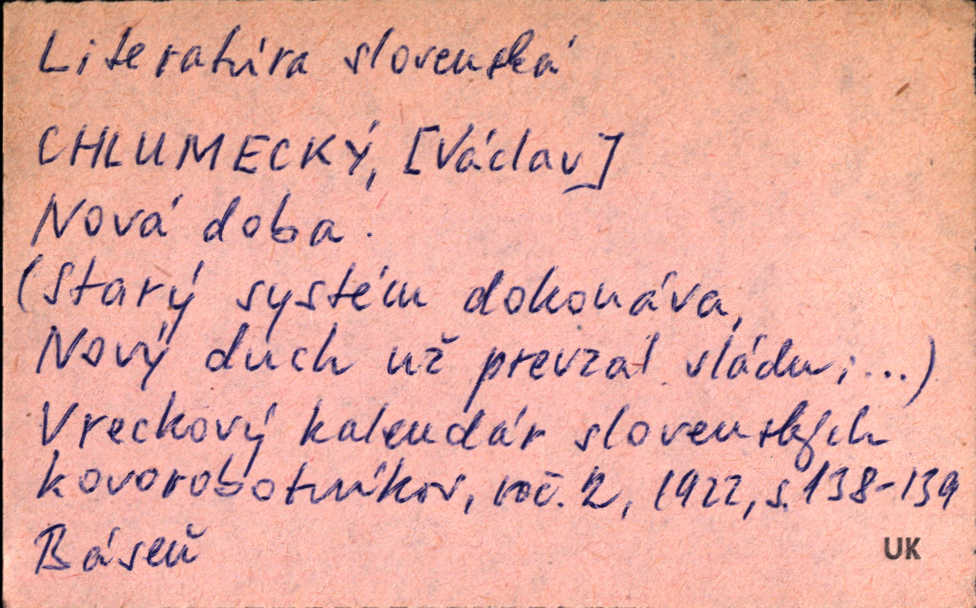 Literatúra slovenská
CHLUMECKÝ, [Václav]
Nová doba.
(Starý systém dokonáva,
Nový duch už prevzal vládu; ...)
Vreckový kalendár slovenských
kovorobotníkov, roč. 2, 1922, s. 138-139
Báseň
UK